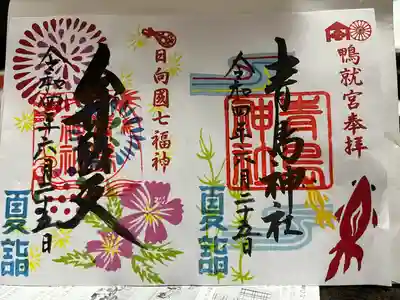 鴨就宮奉拝
青島神社
青島神社
令和四年六月二十五日
夏詣
日向國七福神
弁財天
令和四年六月二十五日
夏詣